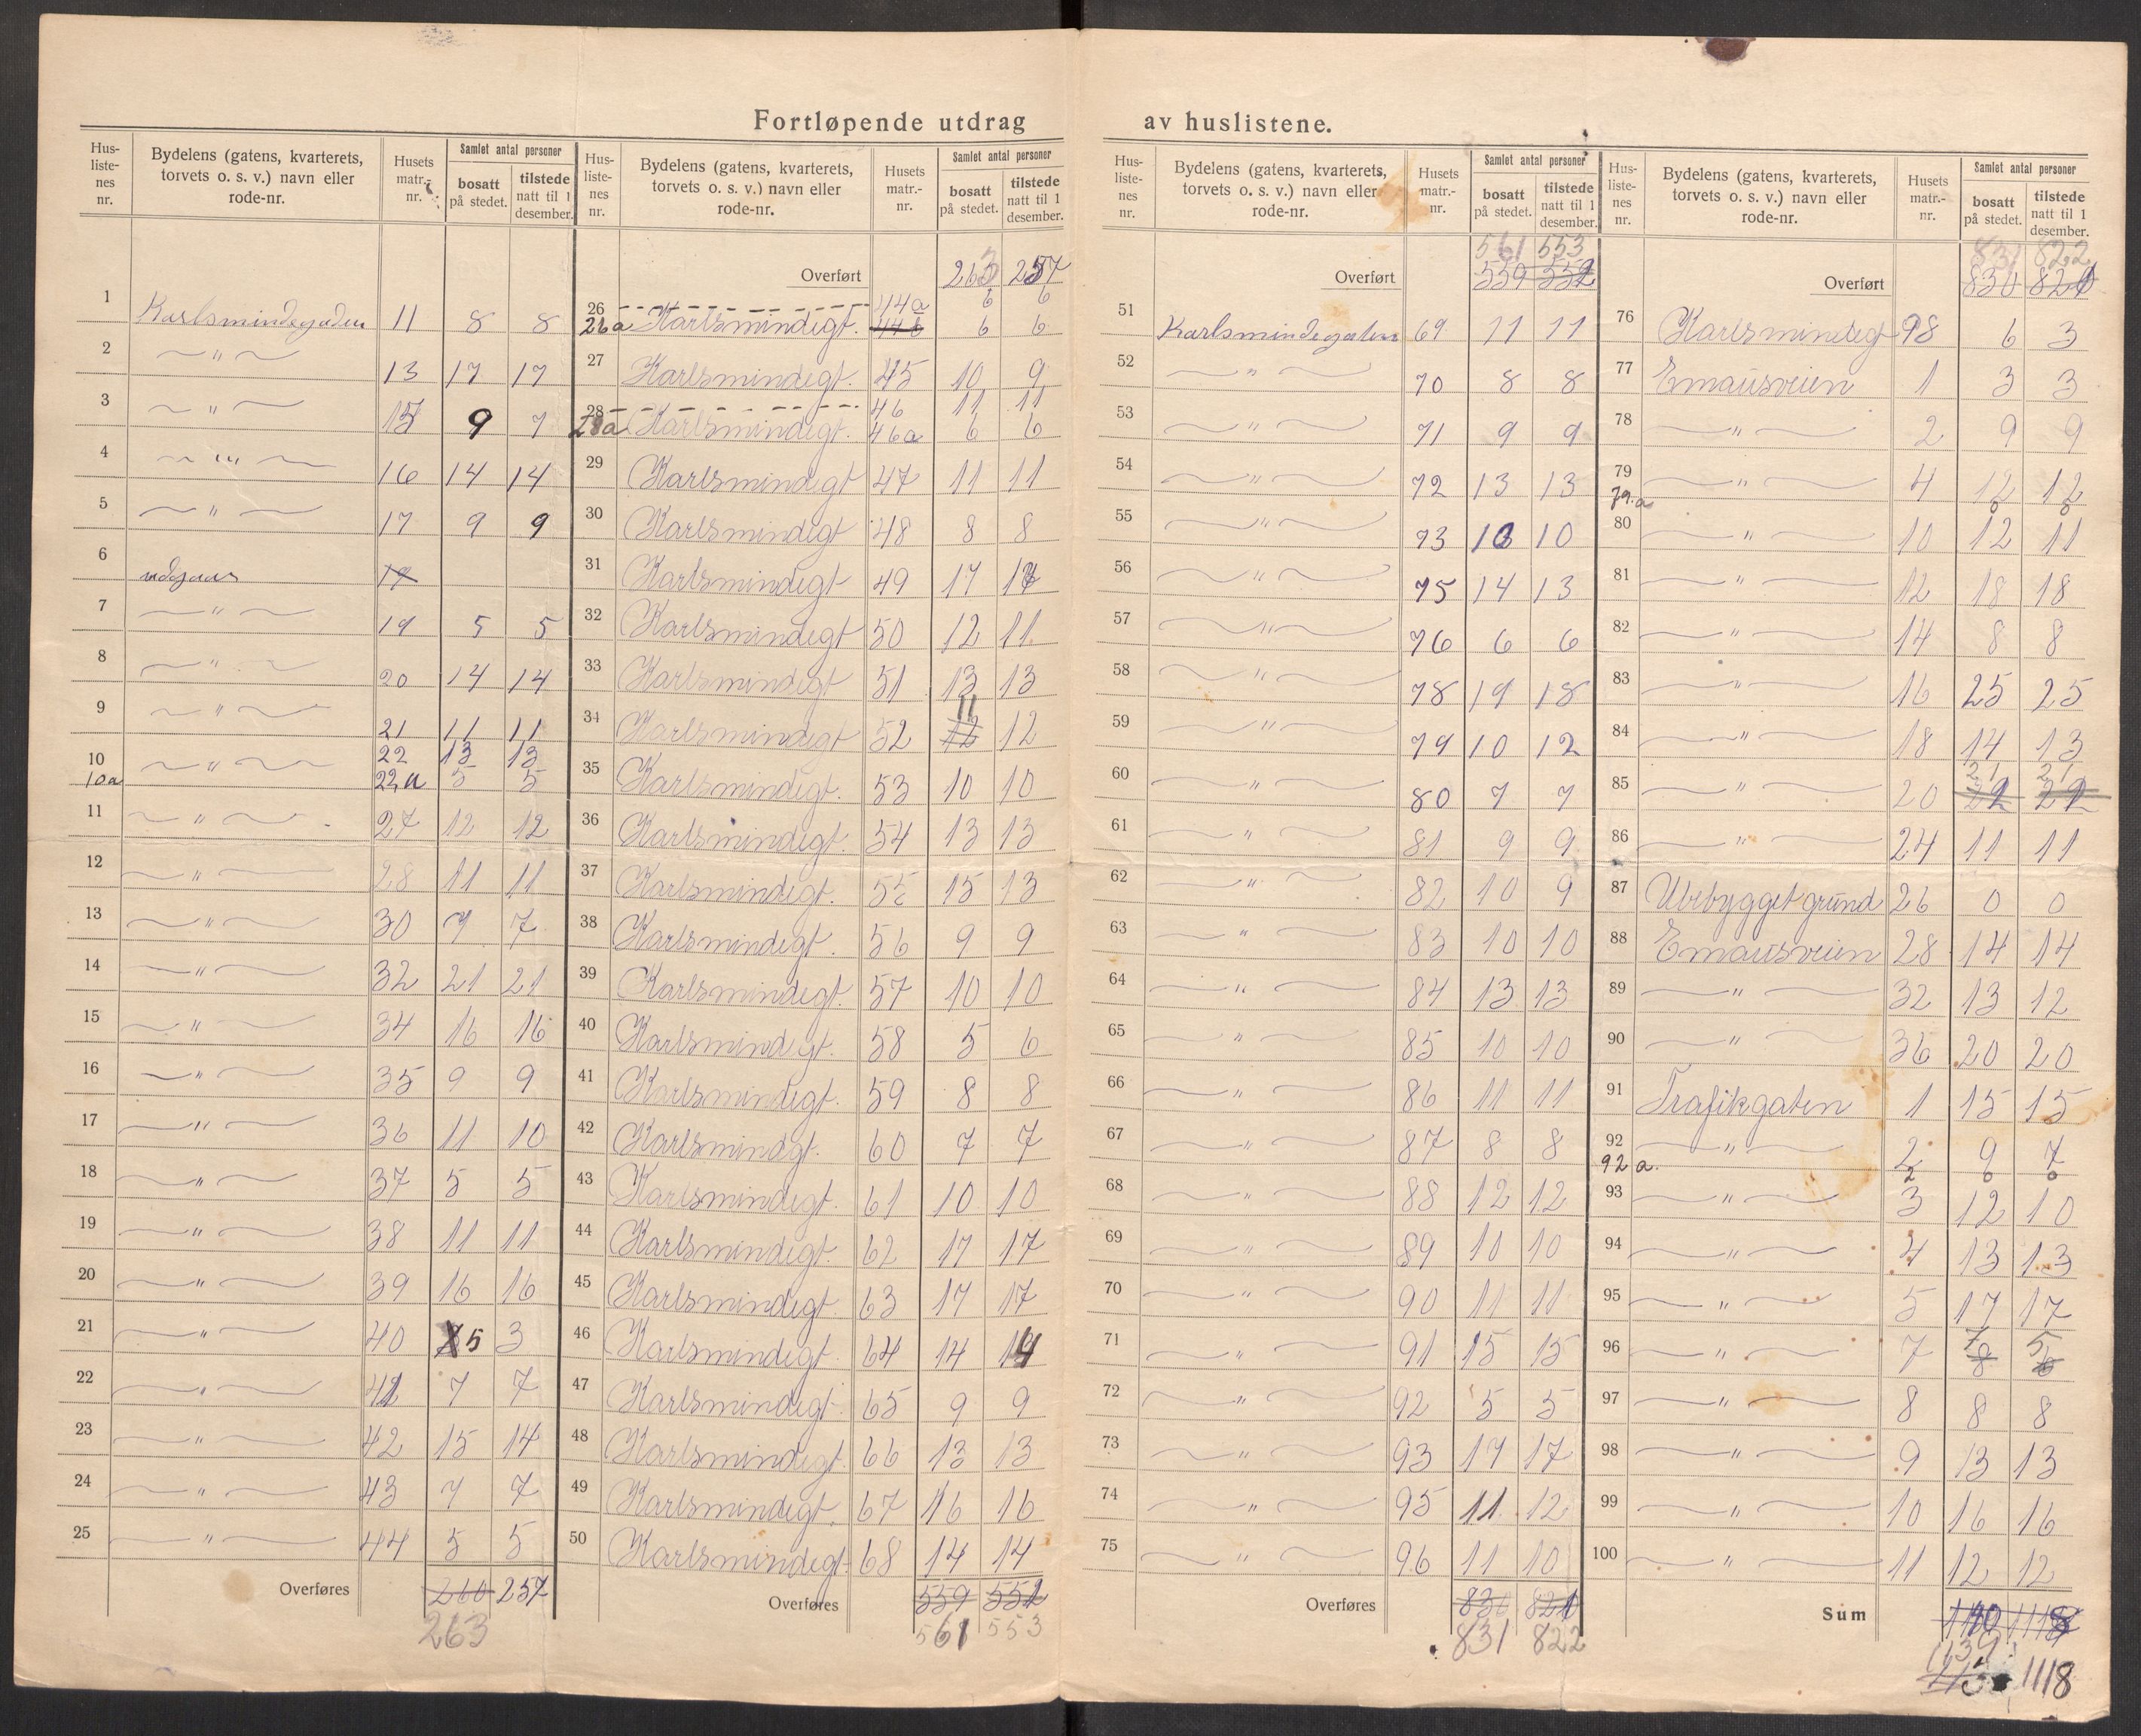 Fortløpende utdrag av huslistene.
Hus-liste-nes nr. | Bydelens (gatens, kvarterets, torvets o. s. v.) navn eller rode-nr. | Husets matr.-nr. | Samlet antal personer | bosatt på stedet. | tilstede natt til 1 desember.
1 Karlsmindegaden 11 8 8
2 — " — 13 17 17
3 — " — 15 9 7
4 — " — 16 14 14
5 — " — 17 9 9
6 udgaar 17
7 — " — 19 5 5
8 — " — 20 14 14
9 — " — 21 11 11
10 — " — 22 13 13
10a 22a 5 5
11 — " — 27 12 12
12 — " — 28 11 11
13 — " — 30 7 7
14 — " — 32 21 21
15 — " — 34 16 16
16 — " — 35 9 9
17 — " — 36 11 10
18 — " — 37 5 5
19 — " — 38 11 11
20 — " — 39 16 16
21 — " — 40 5 3
22 — " — 41 7 7
23 — " — 42 15 14
24 — " — 43 7 7
25 — " — 44 5 5
Overføres 260 257
263
Hus-liste-nes nr. | Bydelens (gatens, kvarterets, torvets o. s. v.) navn eller rode-nr. | Husets matr.-nr. | Samlet antal personer | bosatt på stedet. | tilstede natt til 1 desember.
Overført 263 257
26 44a 6 6
26a Karlsmindegt. 44b 6 6
27 Karlsmindegt. 45 10 9
28 46 11 11
28a Karlsmindegt. 46a 6 6
29 Karlsmindegt 47 11 11
30 Karlsmindegt 48 8 8
31 Karlsmindegt 49 17 17
32 Karlsmindegt 50 12 11
33 Karlsmindegt 51 13 13
34 Karlsmindegt 52 12 11 12
35 Karlsmindegt. 53 10 10
36 Karlsmindegt. 54 13 13
37 Karlsmindegt. 55 15 13
38 Karlsmindegt. 56 9 9
39 Karlsmindegt. 57 10 10
40 Karlsmindegt. 58 5 6
41 Karlsmindegt. 59 8 8
42 Karlsmindgt. 60 7 7
43 Karlsmindegt. 61 10 10
44 Karlsmindegt. 62 17 17
45 Karlsmindegt. 63 17 17
46 Karlsmindegt. 64 14 14
47 Karlsmindegt. 65 9 9
48 Karlsmindegt. 66 13 13
49 Karlsmindegt. 67 16 16
50 Karlsmindegt. 68 14 14
Overføres 559 552
561 553
Hus-liste-nes nr. | Bydelens (gatens, kvarterets, torvets o. s. v.) navn eller rode-nr. | Husets matr.-nr. | Samlet antal personer | bosatt på stedet. | tilstede natt til 1 desember.
561 553
Overført 559 552
51 Karlsmindegaten 69 11 11
52 — " — 70 8 8
53 — " — 71 9 9
54 — " — 72 13 13
55 — " — 73 10 10
56 — " — 75 14 13
57 — " — 76 6 6
58 — " — 78 19 18
59 — " — 79 10 12
60 — " — 80 7 7
61 — " — 81 9 9
62 — " — 82 10 9
63 — " — 83 10 10
64 — " — 84 13 13
65 — " — 85 10 10
66 — " — 86 11 11
67 — " — 87 8 8
68 — " — 88 12 12
69 — " — 89 10 10
70 — " — 90 11 11
71 — " — 91 15 15
72 — " — 92 5 5
73 — " — 93 17 17
74 — " — 95 11 12
75 — " — 96 11 10
Overføres 830 821
831 822
Hus-liste-nes nr. | Bydelens (gatens, kvarterets, torvets o. s. v.) navn eller rode-nr. | Husets matr.-nr. | Samlet antal personer | bosatt på stedet. | tilstede natt til 1 desember.
831 822
Overført 830 821
76 Karlsmindegt 98 6 3
77 Emausveien 1 3 3
78 — " — 2 9 9
79 — " — 4 12 12
79.a 0 0
80 — " — 10 12 11
81 — " — 12 18 18
82 — " — 14 8 8
83 — " — 16 25 25
84 — " — 18 14 13
85 — " — 20 21 21
86 — " — 24 11 11
87 Ubebygget grund 26 0 0
88 Emausveien 28 14 14
89 — " — 32 13 12
90 — " — 36 20 20
91 Trafikgaten 1 15 15
92 — " — 2 9 7
92 a. 2 0 0
93 — " — 3 12 10
94 — " — 4 13 13
95 — " — 5 17 17
96 — " — 7 8 7 6 5
97 — " — 8 8 8
98 — " — 9 13 13
99 — " — 10 16 16
100 — " — 11 12 12
Sum
1139
1118